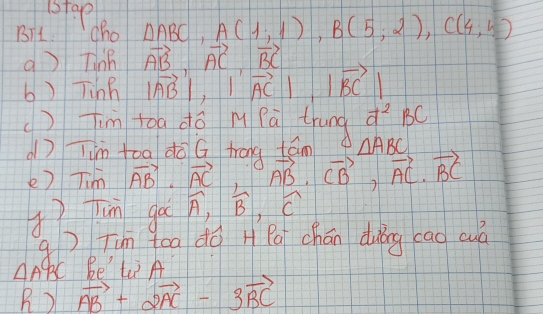 BT1. Cho ΔABC, A(1,1), B(5,2), C(4,4)
a) Tính AB→, AC→, BC→
b) Tính |AB→|, |AC→|, |BC→|
c) Tìm tọa độ M là trung đ² BC
d) Tìm tọa độ G trọng tâm ΔABC
e) Tìm AB→.AC→, AB→.CB→, AC→.BC→
f) Tìm góc Â, B̂, Ĉ
g) Tìm tọa độ H là chân đường cao của
ΔABC kẻ từ A
h) AB→ + 2AC→ - 3BC→